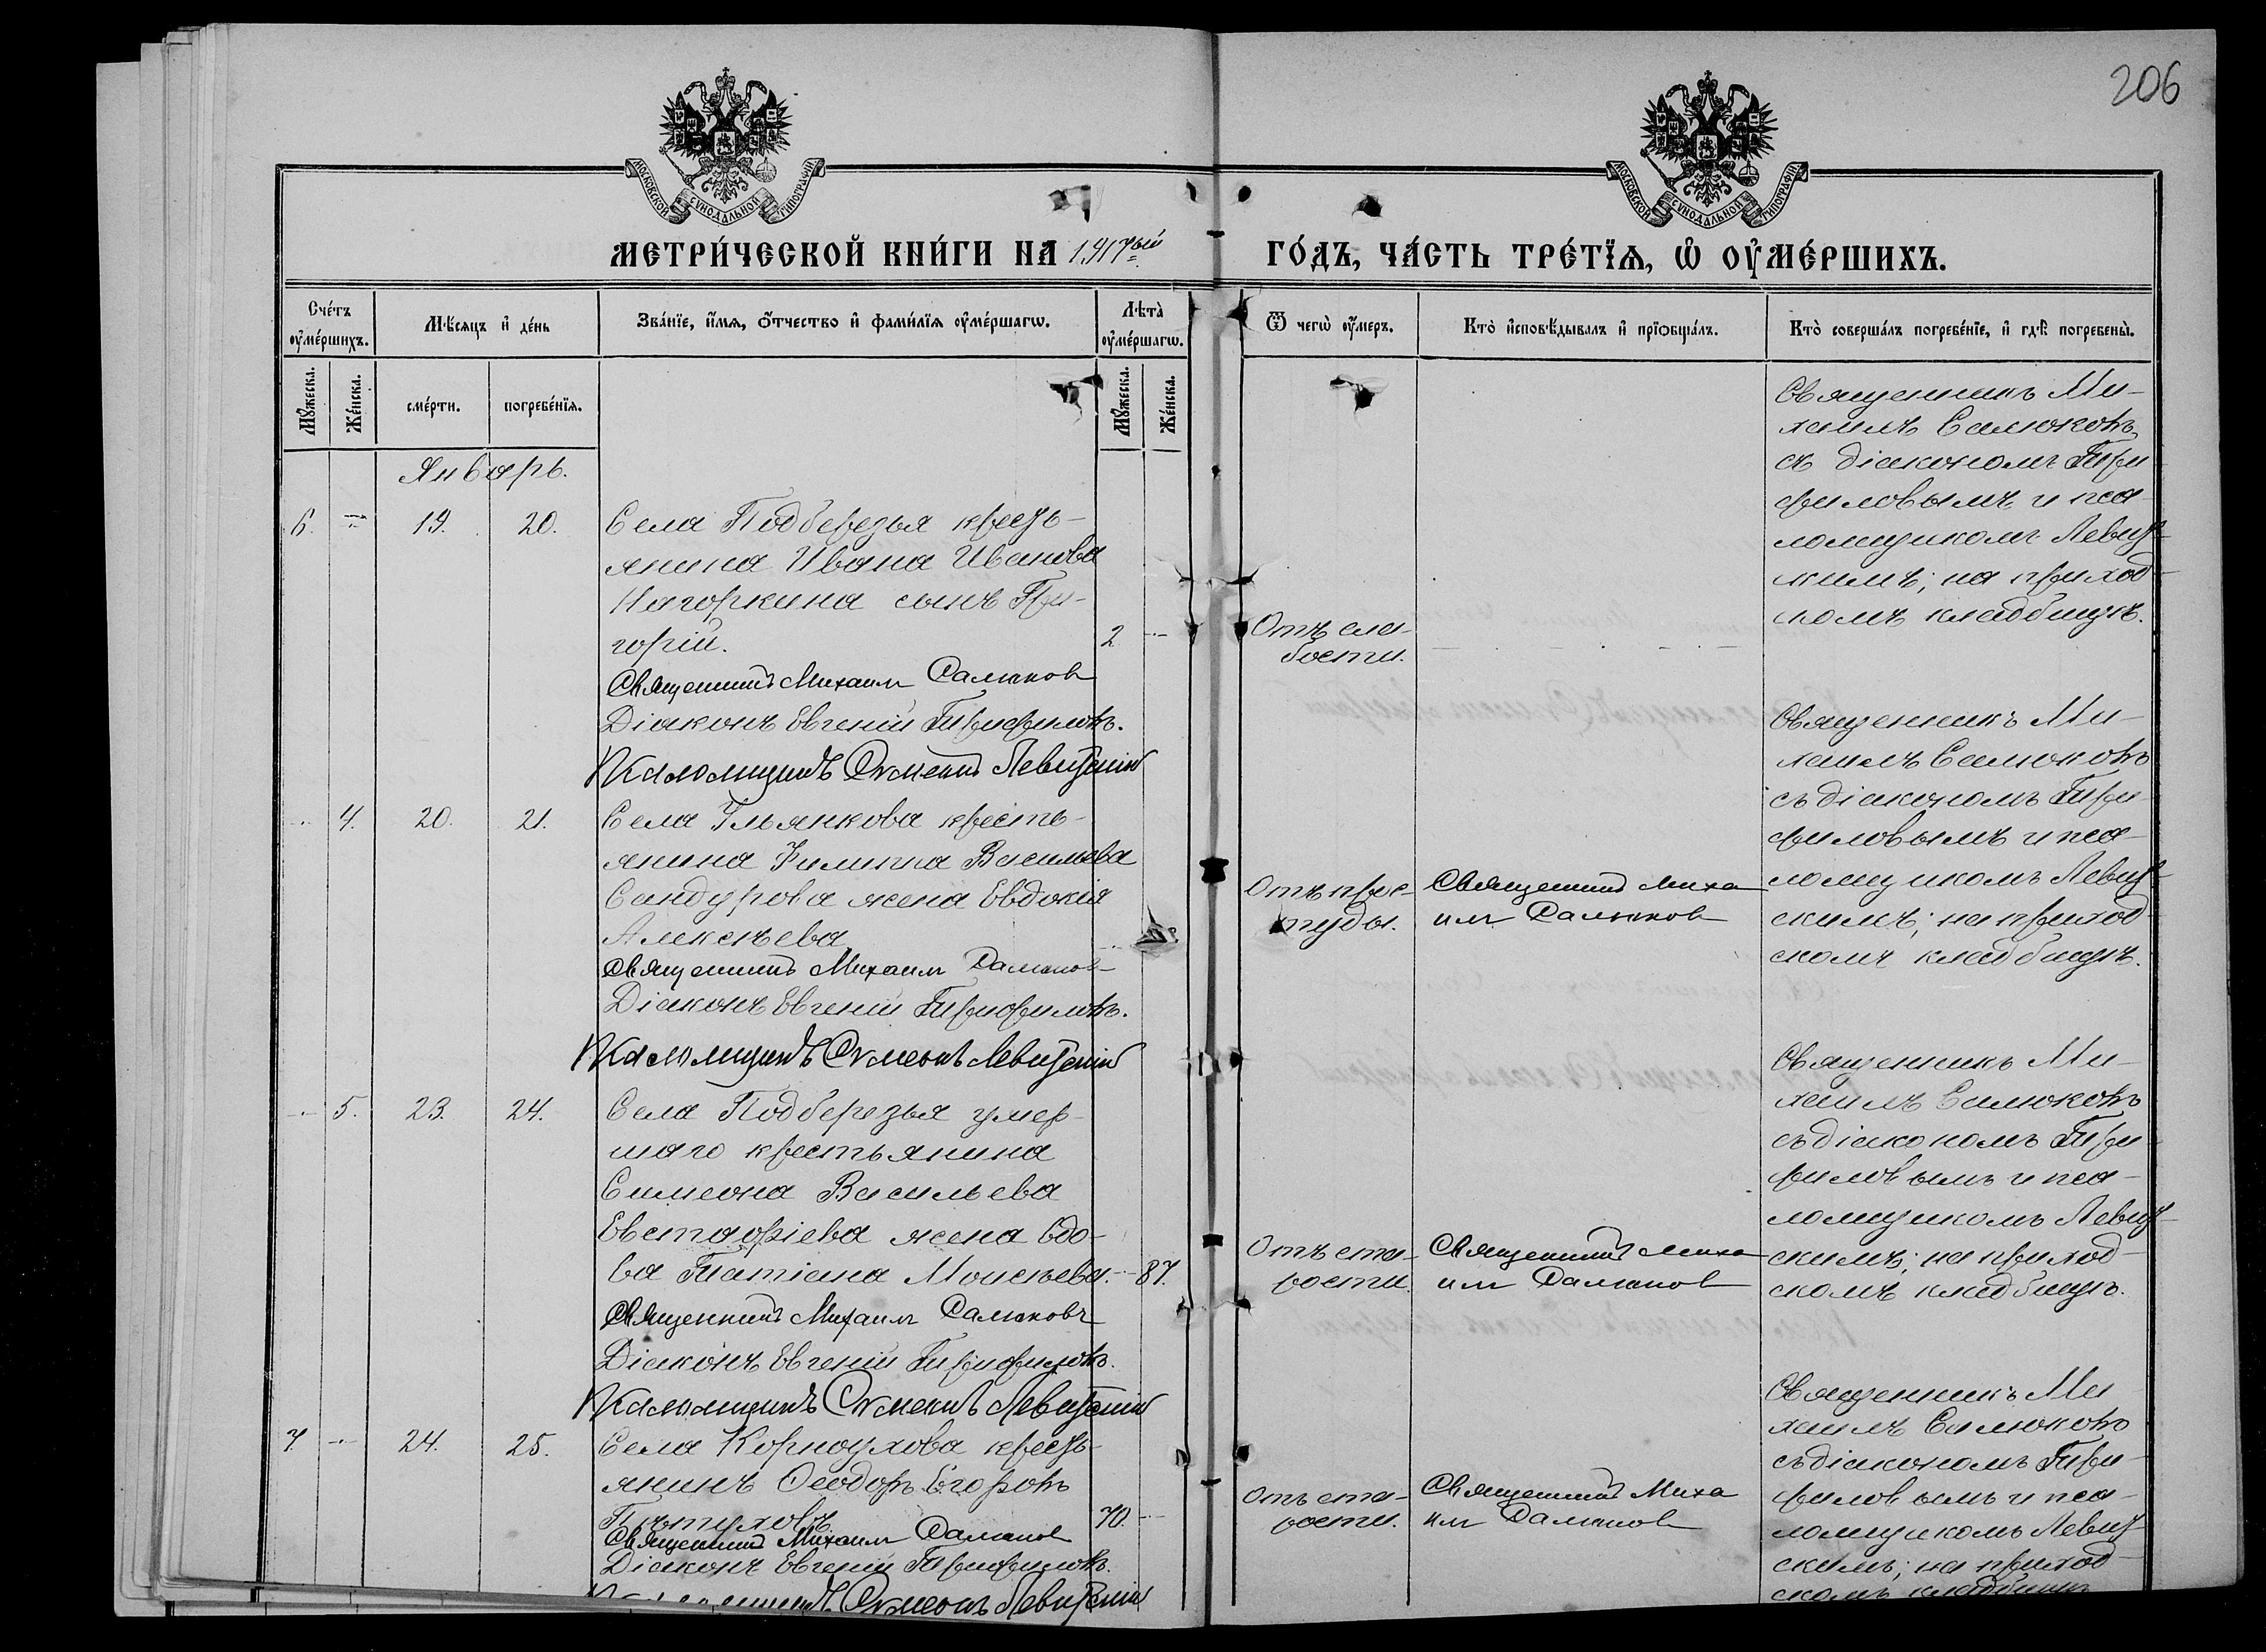 206
МОСКОВСКОЙ СѴНОДАЛЬНОЙ ТИПОГРАФІИ
МОСКОВСКОЙ СѴНОДАЛЬНОЙ ТИПОГРАФІИ
МЕТРИ́ЧЕСКОЙ КНИ́ГИ НА 1917ый ГО́ДЪ, ЧА́СТЬ ТРЕ́ТЇѦ, Ѡ҆ ОУ҆МЕ́РШИХЪ.
Сче́тъ оу҆ме́ршихъ.
Мꙋ́жеска.
Же́нска.
Мѣ́сяцъ и҆ де́нь
сме́рти.
погребе́нїѧ.
Зва́нїе, и҆́мѧ, ѻ҆́тчество и҆ фами́лїѧ оу҆ме́ршагѡ.
Лѣ̀та оу҆ме́ршагѡ.
Мꙋ́жеска.
Же́нска.
Ѿ чегѡ̀ оу҆́меръ.
Кто̀ и҆сповѣ́дывалъ и҆ прїѻбща́лъ.
Кто̀ соверша́лъ погребе́нїе, и҆ гдѣ̀ погребены̀.
Январь.
6. 19. 20.
Села Подберезья кресть-
янина Ивана Иванова
Нагоркина сынъ Гри-
горій. 2
Священникъ Михаил Салюков
Діаконъ Евгеній Трифиловъ.
Псаломщикъ Симеонъ Левитскій
Отъ сла-
бости.
Священникъ Ми-
хаилъ Салюковъ
съ діакономъ Три
филовымъ и пса-
ломщикомъ Левит-
скимъ; на приход-
скомъ кладбищѣ.
4. 20. 21.
Села Ульянкова кресть-
янина Филиппа Васильева
Сандурова жена Евдокія
Алексѣева
Священникъ Михаил Салюков
Діаконъ Евгеній Трифиловъ.
Псаломщикъ Симеонъ Левитскій
Отъ прос-
туды.
Священникъ Миха
ил Салюков
Священникъ Ми-
хаилъ Салюковъ
съ діакономъ Три-
филовымъ и пса-
ломщикомъ Левит-
скимъ; на приход-
скомъ кладбищѣ.
5. 23. 24.
Села Подберезья умер-
шаго крестьянина
Симеона Васильева
Евстафіева жена вдо-
ва Татіана Моисѣева. 87.
Священникъ Михаил Салюковъ
Діаконъ Евгеній Трифиловъ.
Псаломщикъ Симеонъ Левитскій
Отъ ста-
рости.
Священникъ Миха
ил Салюков
Священникъ Ми-
хаилъ Салюковъ
съ діакономъ Три
филовымъ и пса-
ломщикомъ Левит-
скимъ; на приход-
скомъ кладбищѣ.
7. 24. 25.
Села Корноухова кресть-
янинъ Ѳеодоръ Егоровъ
Пѣтуховъ 70.
Священникъ Михаил Салюков
Діаконъ Евгеній Трифиловъ.
Псаломщикъ Симеонъ Левитскій
Отъ ста-
рости.
Священникъ Миха
ил Салюков
Священникъ Ми
хаилъ Салюковъ
съ діакономъ Три-
филовымъ и пса-
ломщикомъ Левит-
скимъ; на приход-
скомъ кладбищѣ